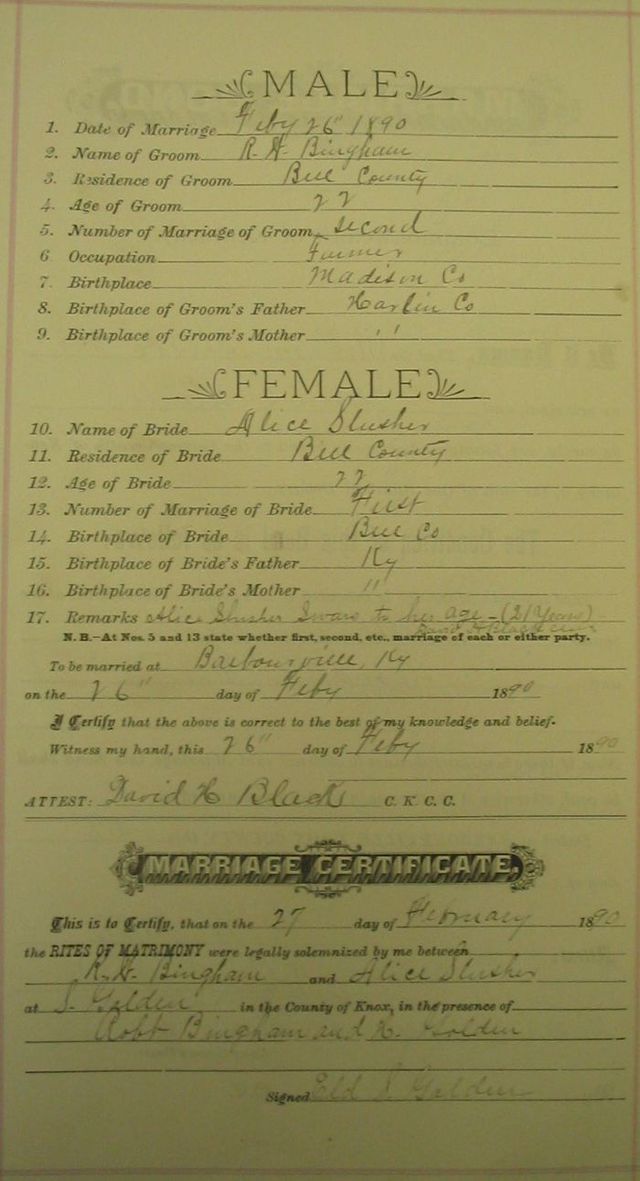 MALE
1. Date of Marriage Feby 26" 1890
2. Name of Groom R. H. Bingham
3. Residence of Groom Bell County
4. Age of Groom 22
5. Number of Marriage of Groom, second
6 Occupation Farmer
7. Birthplace Madison Co
8. Birthplace of Groom's Father Harlin Co
9. Birthplace of Groom's Mother "
FEMALE
10. Name of Bride Alice Slusher
11. Residence of Bride Bell County
12. Age of Bride 22
13. Number of Marriage of Bride First
14. Birthplace of Bride Bell Co
15. Birthplace of Bride's Father Ky
16. Birthplace of Bride's Mother "
17. Remarks Alice Slusher Swars to her age - (21 Years)
David H Black
N. B.—At Nos. 5 and 13 state whether first, second, etc., marriage of each or either party.
To be married at Barbourville, Ky
on the 26" day of Feby 1890
I Certify that the above is correct to the best of my knowledge and belief.
Witness my hand, this 26" day of Feby 1890
ATTEST: David H Black C. K. C. C.
MARRIAGE CERTIFICATE.
This is to Certify, that on the 27 day of February 1890
the RITES OF MATRIMONY were legally solemnized by me between
R. H. Bingham and Alice Slusher
at S. Golden in the County of Knox, in the presence of
Robt Bingham and H. Golden
Signed Eld S. Golden